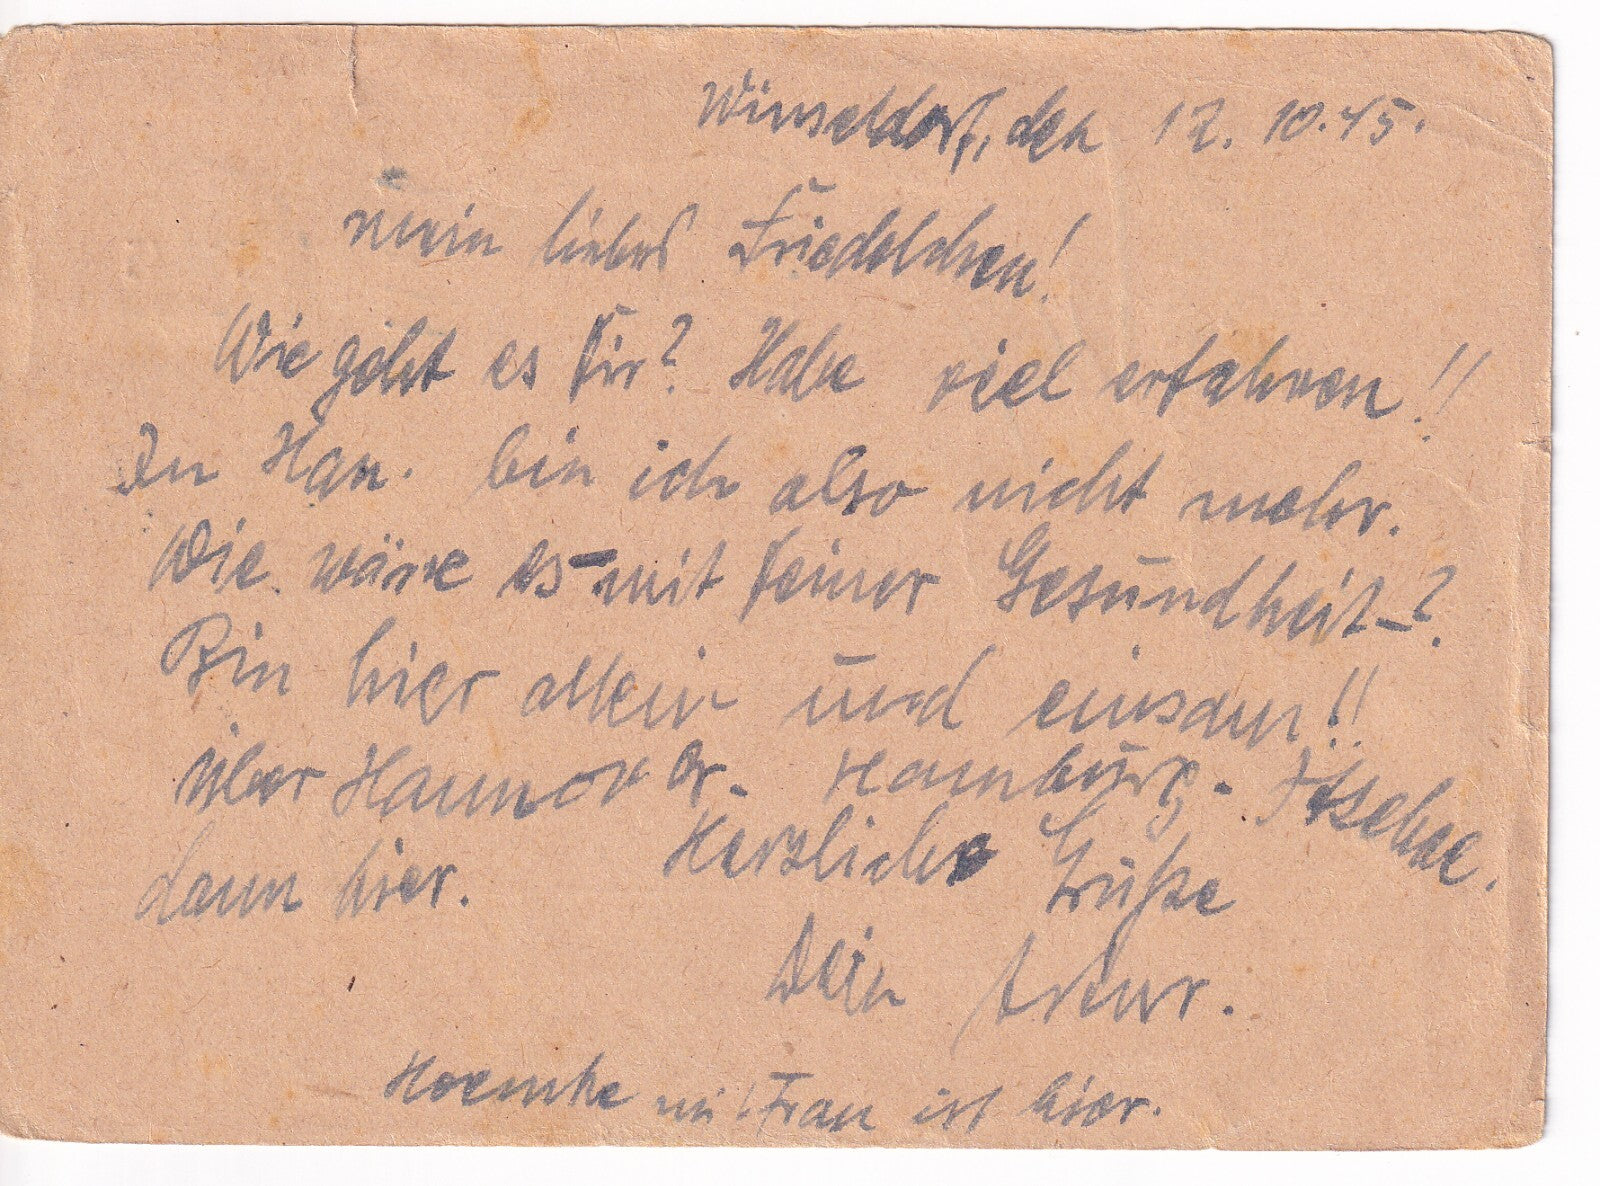 Winseldorf, den 12. 10. 45.
Mein liebes Friedelchen!
Wie geht es Dir? Habe viel erfahren!!
In Han. bin ich also nicht mehr.
Wie wäre es mit Deiner Gesundheit-?
Bin hier allein und einsam!!
Über Hannover - Hamburg - Itzehoe.
dann hier. Herzliche Grüße
Dein Artur.
mit Frau ist hier.